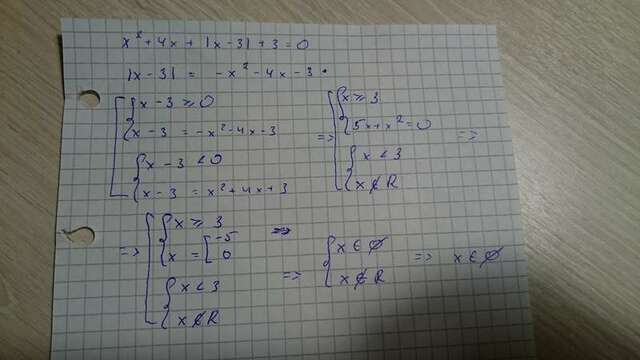 x² + 4x + |x - 3| + 3 = 0
|x - 3| = -x² - 4x - 3 .
[ { x - 3 ≥ 0
{ x - 3 = -x² - 4x - 3
{ x - 3 < 0
{ x - 3 = x² + 4x + 3
=> [ { x ≥ 3
{ 5x + x² = 0
{ x < 3
{ x ∉ R
=>
=> [ { x ≥ 3
{ x = [ -5
0
{ x < 3
{ x ∉ R
=>
=> { x ∈ ∅
{ x ∉ R
=> x ∈ ∅